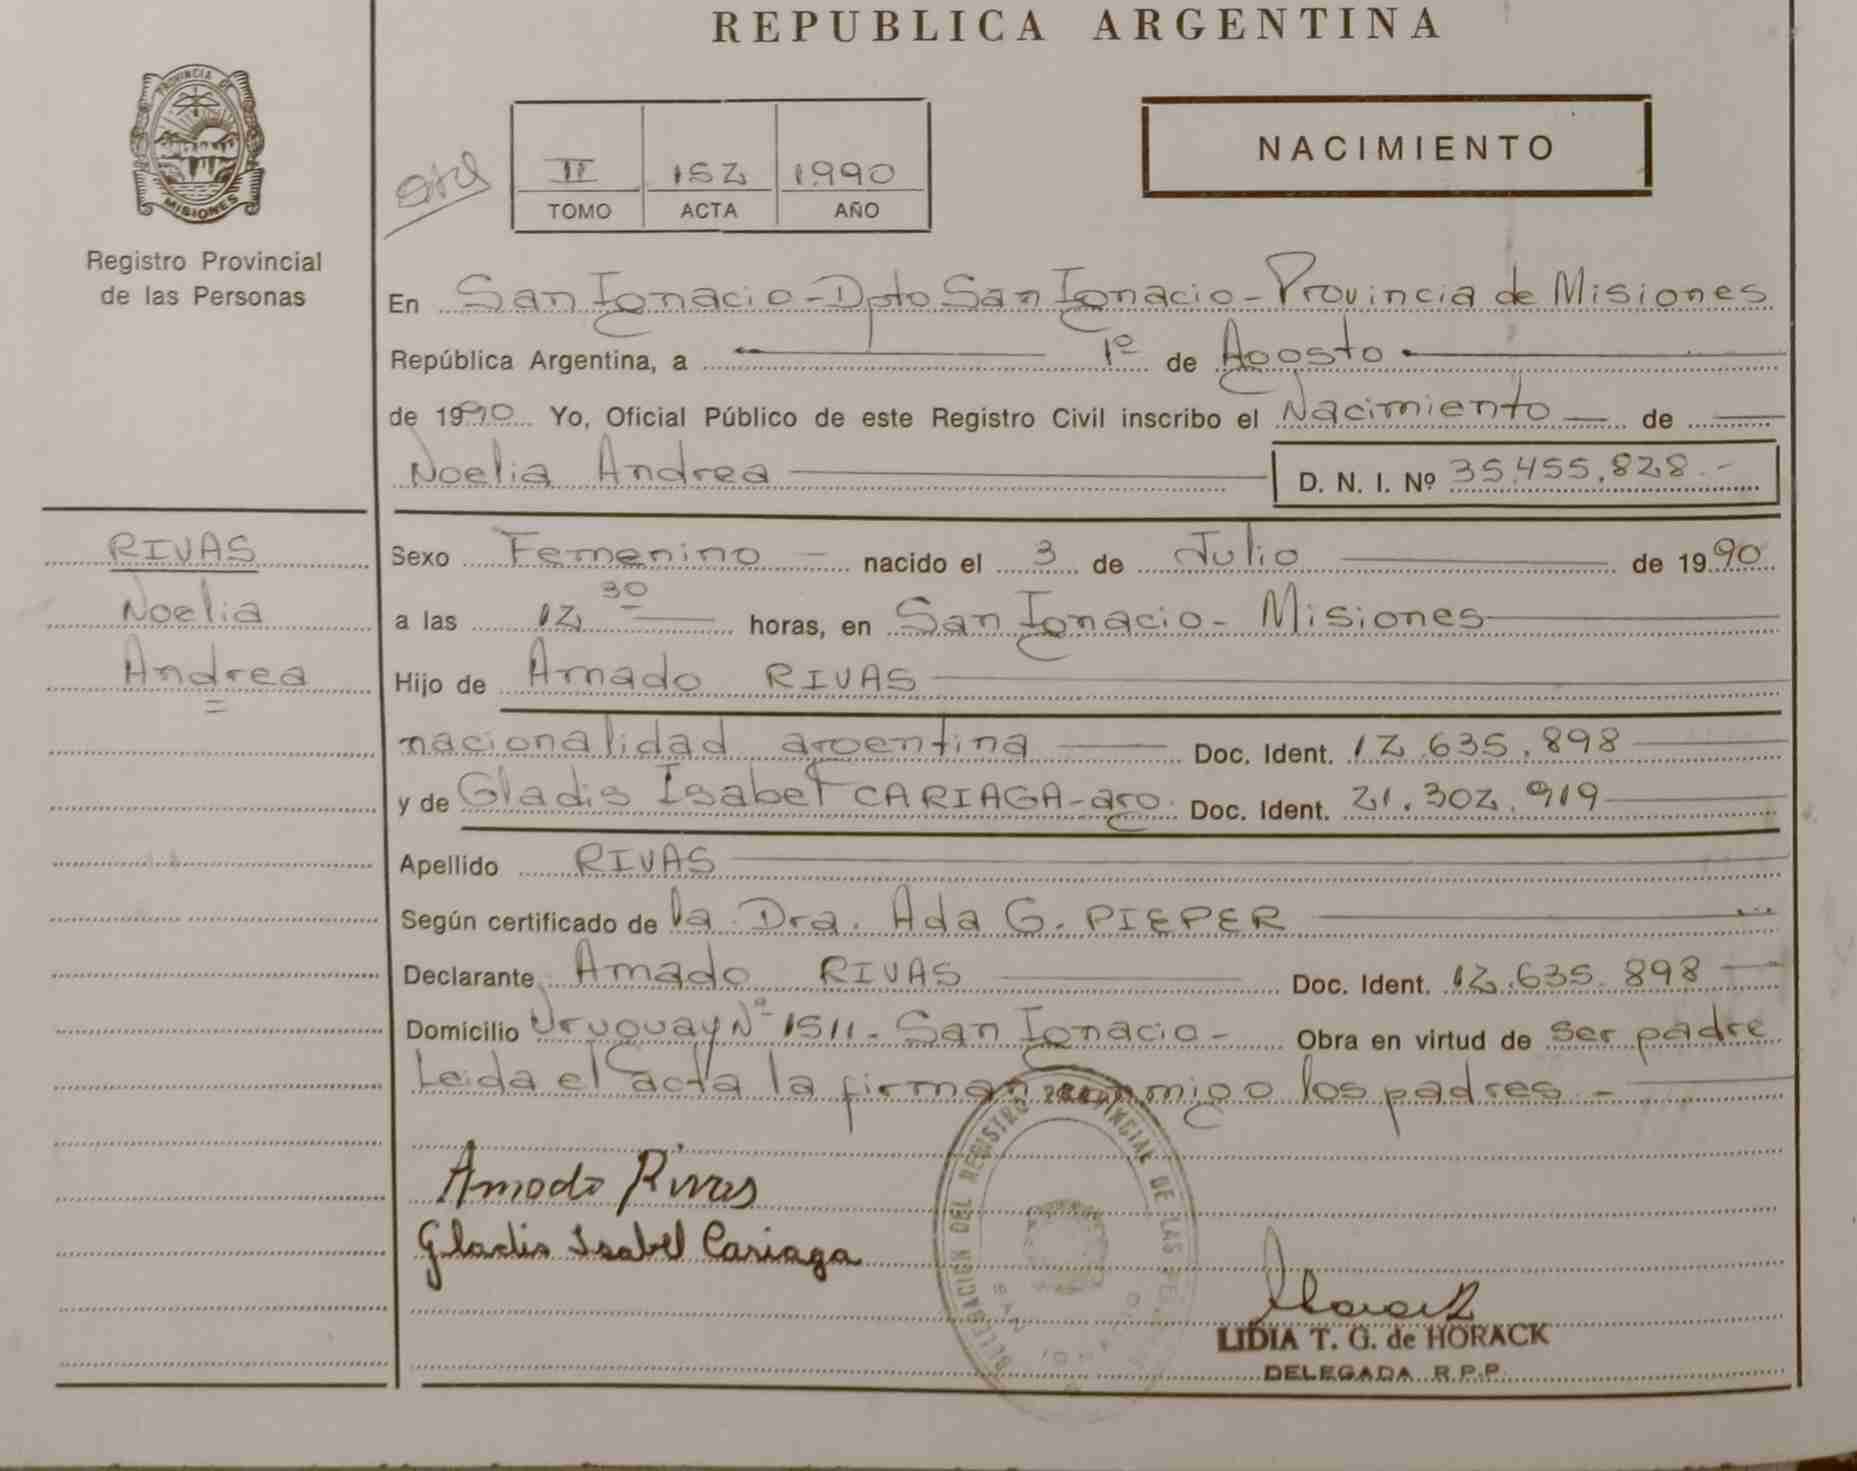 REPUBLICA ARGENTINA
PROVINCIA DE
MISIONES
Registro Provincial
de las Personas
II 152 1990
TOMO ACTA AÑO
NACIMIENTO
En San Ignacio - Dpto San Ignacio - Provincia de Misiones
República Argentina, a 1º de Agosto
de 1990 Yo, Oficial Público de este Registro Civil inscribo el Nacimiento de
Noelia Andrea D. N. I. Nº 35.455.828.-
RIVAS
Noelia
Andrea
Sexo Femenino nacido el 3 de Julio de 1990
a las 12 30 horas, en San Ignacio - Misiones
Hijo de Amado RIVAS
nacionalidad argentina Doc. Ident. 12.635.898
y de Gladis Isabel CARIAGA - arg. Doc. Ident. 21.302.919
Apellido RIVAS
Según certificado de la Dra. Ada G. PIEPER
Declarante Amado RIVAS Doc. Ident. 12.635.898
Domicilio Uruguay Nº 1511 - San Ignacio - Obra en virtud de ser padre
Leida el acta la firman conmigo los padres -
Amado Rivas
Gladis Isabel Cariaga
DELEGACION DEL REGISTRO PROVINCIAL DE LAS
LIDIA T. G. de HORACK
DELEGADA R.P.P.